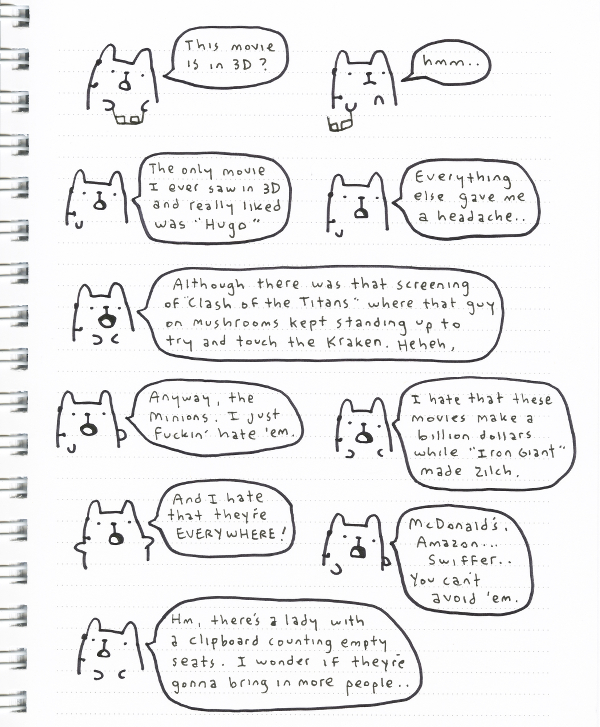 This movie
is in 3D?
hmm..
The only movie
I ever saw in 3D
and really liked
was "Hugo"
Everything
else gave me
a headache..
Although there was that screening
of "Clash of the Titans" where that guy
on mushrooms kept standing up to
try and touch the Kraken. Heheh,
Anyway, the
minions. I just
fuckin' hate 'em.
I hate that these
movies make a
billion dollars
while "Iron Giant"
made zilch.
And I hate
that they're
EVERYWHERE!
McDonald's,
Amazon...
Swiffer..
You can't
avoid 'em.
Hm, there's a lady with
a clipboard counting empty
seats. I wonder if they're
gonna bring in more people..